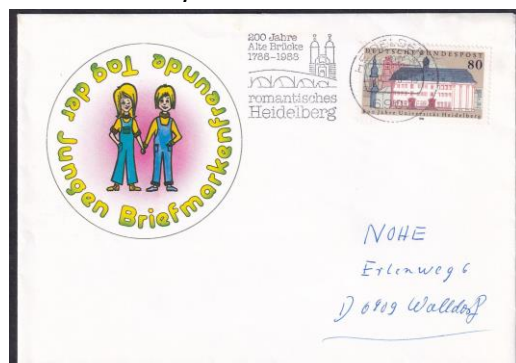 Tag der Jungen Briefmarkenfreunde
200 Jahre
Alte Brücke
1786-1986
romantisches
Heidelberg
DEUTSCHE BUNDESPOST
80
600 Jahre Universität Heidelberg
NOHE
Erlenweg 6
D 6909 Walldorf